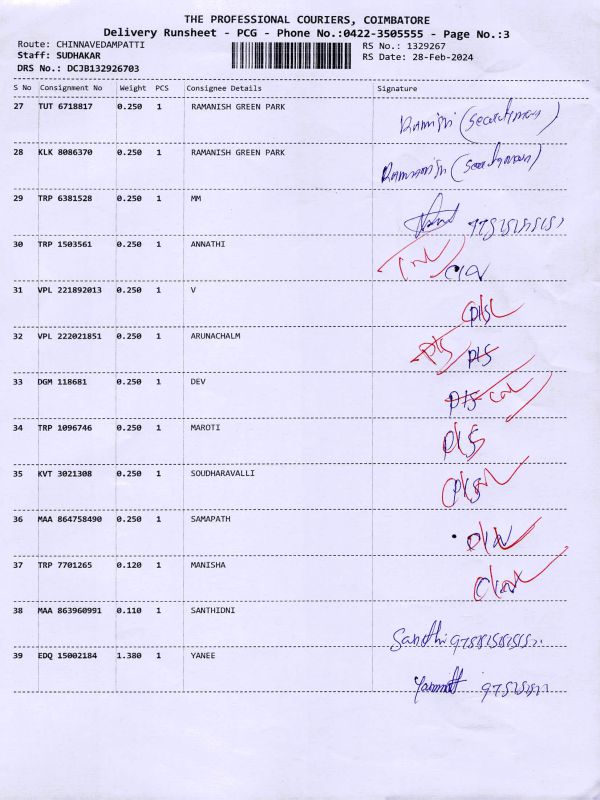 THE PROFESSIONAL COURIERS, COIMBATORE
Delivery Runsheet - PCG - Phone No.:0422-3505555 - Page No.:3
Route: CHINNAVEDAMPATTI RS No.: 1329267
Staff: SUDHAKAR RS Date: 28-Feb-2024
DRS No.: DCJB132926703
S No Consignment No Weight PCS Consignee Details Signature
27 TUT 6718817 0.250 1 RAMANISH GREEN PARK
28 KLK 8086370 0.250 1 RAMANISH GREEN PARK
29 TRP 6381528 0.250 1 MM
30 TRP 1503561 0.250 1 ANNATHI
31 VPL 221892013 0.250 1 V
32 VPL 222021851 0.250 1 ARUNACHALM
33 DGM 118681 0.250 1 DEV
34 TRP 1096746 0.250 1 MAROTI
35 KVT 3021308 0.250 1 SOUDHARAVALLI
36 MAA 864758490 0.250 1 SAMAPATH
37 TRP 7701265 0.120 1 MANISHA
38 MAA 863960991 0.110 1 SANTHIDNI
39 EDQ 15002184 1.380 1 YANEE